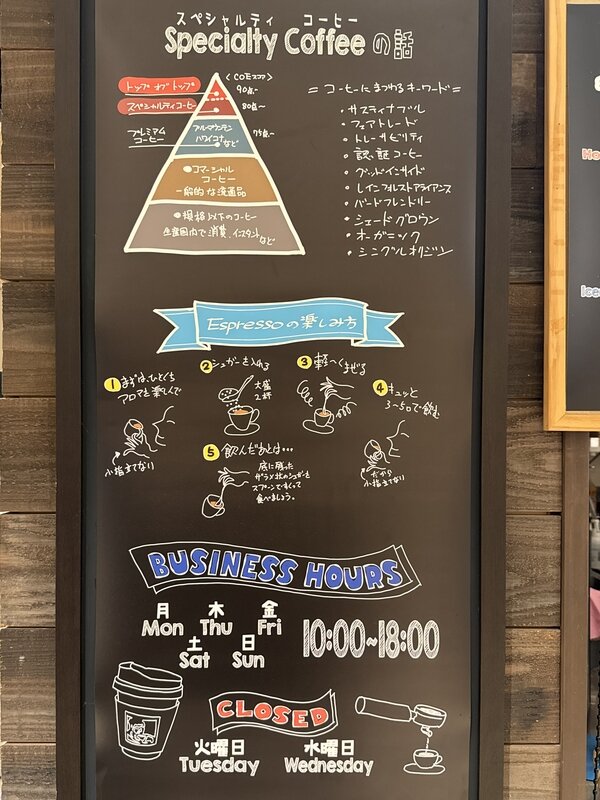 スペシャルティ コーヒー
Specialty Coffee の話
〈COEスコア〉
トップ オブ トップ 90点~
スペシャルティコーヒー 80点~
プレミアムコーヒー
ブルーマウンテン
ハワイコナ など
75点~
●コマーシャル
コーヒー
一般的な流通品
●規格以下のコーヒー
生産国内で消費、インスタントなど
=コーヒーにまつわるキーワード=
・サスティナブル
・フェアトレード
・トレーサビリティ
・認証コーヒー
・グッドインサイド
・レインフォレストアライアンス
・バードフレンドリー
・シェードグロウン
・オーガニック
・シングルオリジン
Espressoの楽しみ方
1 まずは、ひとくち
アロマを楽しんで
小指立てない
2 シュガーを入れる
大盛
2杯
3 軽〜くまぜる
4 キュッと
3~5口で飲む
だから
小指立てない
5 飲んだあとは…
底に残った
ザラメ状のシュガーを
スプーンですくって
食べましょう。
BUSINESS HOURS
月 木 金
Mon Thu Fri
土 日
Sat Sun
10:00~18:00
CLOSED
火曜日 水曜日
Tuesday Wednesday